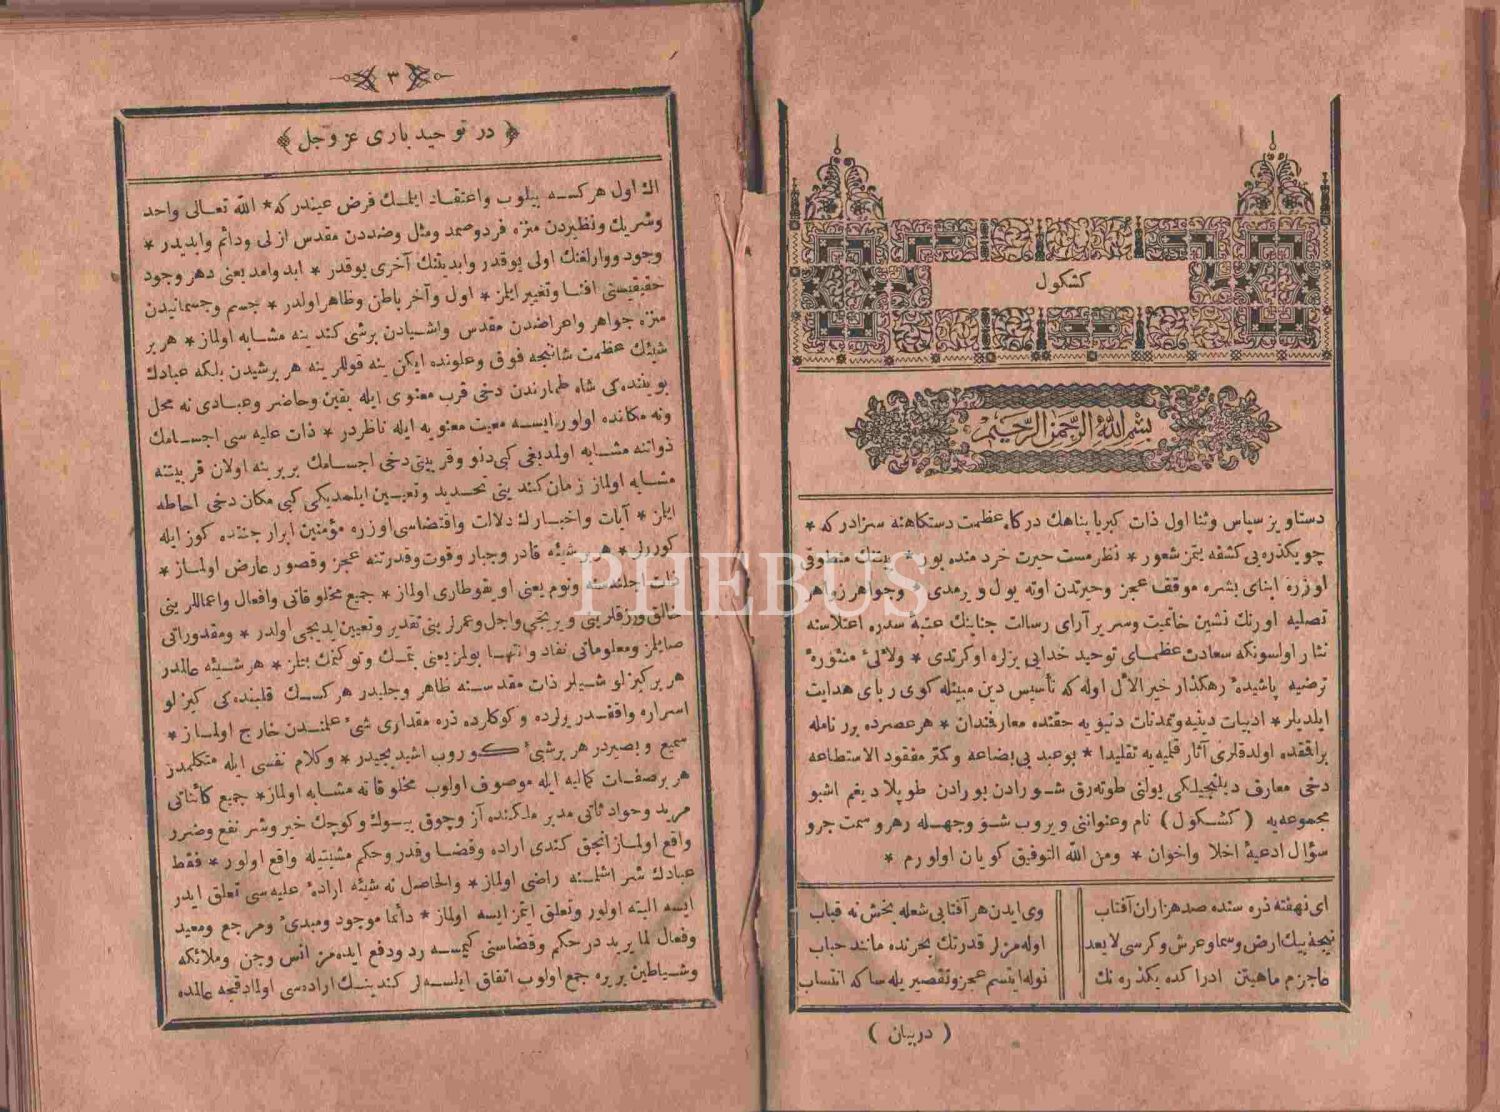 كشكول
بسم الله الرحمن الرحيم
دستاويز سپاس وثنا اول ذات كبريا پناهك دركاه عظمت دستكاهنه سزادر كه *
چو يكذره بی كشفه يتمز شعور * نظر مست حيرت خرد منده بور * بيتنك منطوقی
اوزره ابنای بشره موقف عجز وحيرتدن اوته يول ويرمدی * وجواهر زواهر
تصليه اورنك نشين خاتميت وسرير آرای رسالت جنابنك عتبهٔ سدره اعتلاسنه
نثار اولسونكه سعادت عظمای توحيد خدايی بزلره اوكرتدی * ولآلئ منثورهٔ
ترضيه پاشيدهٔ رهكذار خير الآل اوله كه تأسيس دين مبينله كوی ربای هدايت
ايلديلر * ادبيات دينيه وتمدنات دنيويه حقنده معارفمندان * هر عصرده برر نامله
براقفده اولدقلری آثار قلميه يه تقليدا * بو عبد بی بضاعه وكمتر مفقود الاستطاعه
دخی معارف ديلنجيلكی يولنی طوته رق شورادن بورادن طوپلاديغم اشبو
مجموعه يه ( كشكول ) نام وعنواننی ويروب شوَ وجهله رهرو سمت جرو
سؤال ادعيهٔ اخلا واخوان * ومن الله التوفيق كويان اولورم *
ای نهفته ذره سنده صد هزاران آفتاب
وی ايدن هر آفتابی شعله بخش نه قباب
نتيجه بيك ارض وسما وعرش وكرسی لا يعد
اوله مزلر قدرتك بحرنده مانند حباب
عاجزم ماهيتن ادراكده بكذره نك
نوله ايتسم عجز وتقصير يله ساكه انتساب
( دربيان )
٣
در توحيد باری عز وجل
اك اول هركسه بيلوب واعتقاد ايلمك فرض عيندر كه * الله تعالی واحد
وشريك ونظيردن منزه فرد وصمد ومثل وضددن مقدس ازلی ودائم وابديدر *
وجود ووارلغنك اولی يوقدر وابديتنك آخری يوقدر * ابد وامد يعنی دهر وجود
حقيقيسنی افنا وتغيير ايلمز * اول وآخر باطن وظاهر اولدر * جسم وجسمانيدن
منزه جواهر واعراضدن مقدس واشيادن برشی كندينه مشابه اولماز * هر بر
شيئك عظمت شانيجه فوق وعلونده ايكن ينه قوللرينه هر برشيدن بلكه عبادك
بوينده كی شاه طمارندن دخی قرب معنوی ايله يقين وحاضر وعبادی نه محل
ونه مكانده اولورايسه معيت معنويه ايله ناظردر * ذات عليه سی اجسامك
ذواتنه مشابه اولمديغی كبی دنو وقربيتی دخی اجسامك بربرينه اولان قربيتنه
مشابه اولماز زمان كندينی تحديد وتعيين ايلمديكی كبی مكان دخی احاطه
ايلمز * آيات واخبارك دلالت واقتضاسی اوزره مؤمنين ابرار جنتده كوز ايله
كوررلر * هر شيئه قادر وجبار وقوت وقدرتنه عجز وقصور عارض اولماز *
ذات اجلنه سنه ونوم يعنی اويقو طاری اولماز * جميع مخلوقاتی وافعال واعماللرينی
خالق ورزقلرينی ويريجی واجل وعمرلرينی تقدير وتعيين ايديجی اولدر * ومقدوراتی
صايلمز ومعلوماتی نفاد وانتها بولمز يعنی بتمك وتوكنمك بيلمز * هر شيئه عالمدر
هر بر كيزلو شيلر ذات مقدسنه ظاهر وجليدر هركسك قلبنده كی كيزلو
اسراره واقفدر يرلرده وكوكلرده ذره مقداری شئ علمندن خارج اولماز *
سميع وبصيردر هر برشيئ كوروب اشيديجيدر * وكلام نفسی ايله متكلمدر
هر بر صفات كماليه ايله موصوف اولوب مخلوقاته مشابه اولماز * جميع كائناتی
مريد وحوادثاتی مدبر ملكنده آز وچوق بيوك وكوچك خير وشر نفع وضرر
واقع اولماز انجق كندی اراده وقضا وقدر وحكم مشيتيله واقع اولور * فقط
عبادك شر اشلمسنه راضی اولماز * والحاصل نه شيئه ارادهٔ عليه سی تعلق ايدر
ايسه البته اولور وتعلق ايتمز ايسه اولماز * دائما موجود ومبدئ ومرجع ومعيد
وفعال لما يريد در حكم وقضاسنی كيمسه رد ودفع ايده مز انس وجن وملائكه
وشياطين بريره جمع اولوب اتفاق ايلسه لر كندينك اراده سی اولمادقجه عالمده
PHEBUS